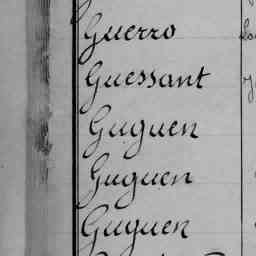 Guerro
Guessant
Guguen
Guguen
Guguen